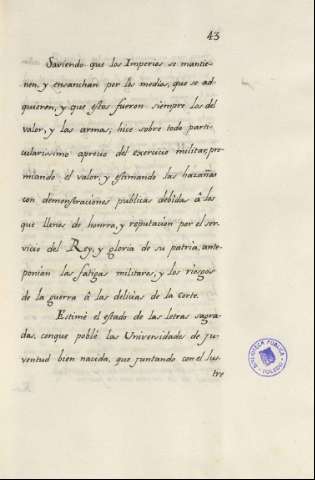 43
Saviendo que los Imperios se mantie-
nen, y ensanchan por los medios, que se ad-
quieren, y que estos fueron siempre los del
valor, y las armas, hice sobre todo parti-
cularissimo aprecio del exercicio militar, pre-
miando el valor, y estimando las hazañas
con demonstraciones publicas debidas â los
que llenos de honrra, y reputacion por el ser-
vicio del Rey, y gloria de su patria, ante-
ponian las fatigas militares, y los riesgos
de la guerra â las delicias de la corte.
Estimè el estado de las letras sagra-
das, conque poblè las Universidades de ju-
ventud bien nacida, que juntando con el lus-
tre
BIBLIOTECA PUBLICA
TOLEDO